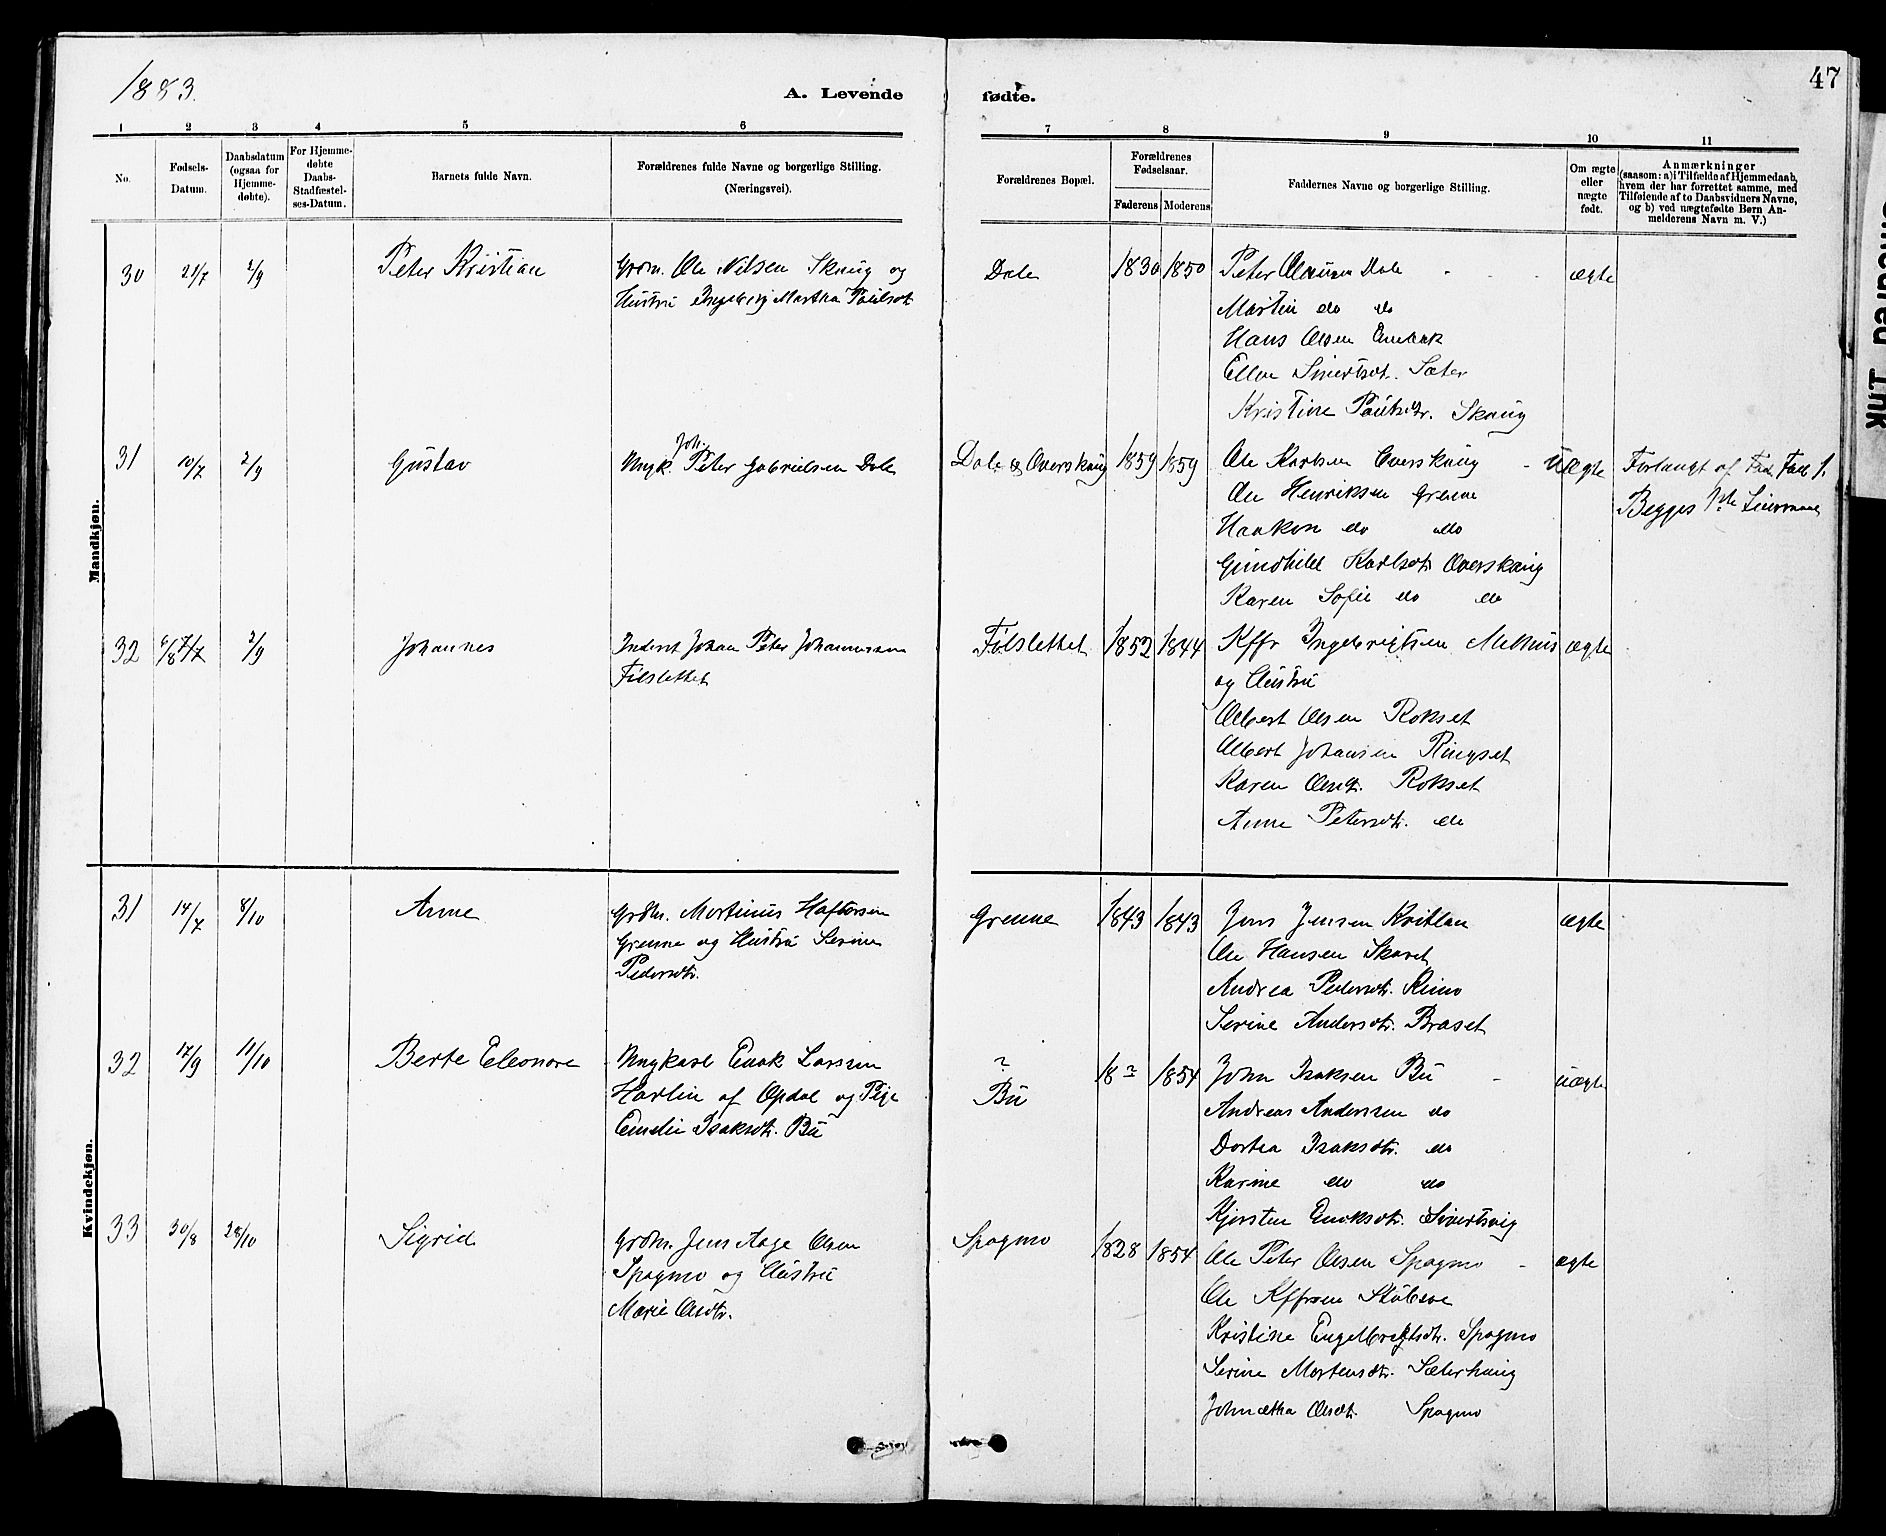 1883.
A. Levende
fødte.
47
1 2 3 4 5 6 7 8 9 10 11
No.
Fødsels-
Datum.
Daabsdatum
(ogsaa for
Hjemme-
døbte).
For Hjemme-
døbte
Daabs-
Stadfæstel-
ses-Datum.
Barnets fulde Navn.
Forældrenes fulde Navne og borgerlige Stilling.
(Næringsvei).
Forældrenes Bopæl.
Forældrenes
Fødselsaar.
Faderens
Moderens
Faddernes Navne og borgerlige Stilling.
Om ægte
eller
nægte
født.
Anmærkninger
(saasom: a) i Tilfælde af Hjemmedaab,
hvem der har forrettet samme, med
Tilføiende af to Daabsvidners Navne,
og b) ved uægtefødte Børn An-
melderens Navn m. V.)
Mandkjøn.
30 21/7 2/9 Peter Kristian
Grdm. Ole Nilsen Skaug og
Hustru Ingeborg Martha Paulsdt
Dale 1830 1850
Peter Dale
Martin do do
Hans Olsen
Ellen Sivertsdt. Sæter
Kristine Paulsdtr. Skaug
ægte
31 10/7 2/9 Gustav
Joh.
Ungk. Peter Gabrielsen Dale
Dale og Overskaug 1859 1859
Ole Karlsen Overskaug
Ole Henriksen Grenne
Haakon do do
Gundhild Karlsdt. Overskaug
Karen Sofie do do
Uægte
Forlangt af
Begges 1ste Leiermaal
32 2/9 Johannes
Inderst Johan Peter Johannessen
Filslettet
Filslettet 1852 1844
Kffr Ingebrigtsen Melhus
og Hustru
Albert Olsen Rokset
Albert Johansen Ringset
Karen Olsdt. Rokset
Anne Petersdtr. do
ægte
Kvindekjøn.
31 14/7 8/10 Anne
Grdm. Martinus Haftorsen
Grenne og Hustru Serine
Pedersdtr.
Grenne 1843 1843
Jens Jensen Kvitlan
Ole Hansen Skaret
Andrea Pedersdtr. Reimo
Serine Andersdtr. Braset
ægte
32 17/9 11/10 Berte Eleonore
Ungkarl Enok Larssen
Harlin af Opdal og Pige
Emelie Isaksdtr. Bu
?
Bu
18? 1854
John Isaksen Bu
Andreas Anderssen do
Dortea Isaksdtr. do
Karine do do
Kjersten Enoksdtr. Sivertsvig
uægte
33 30/8 28/10 Sigrid
Grdm. Jens Aage Olsen
Spagmo og Hustru
Marie Olsdtr.
Spagmo 1828 1854
Ole Peter Olsen Spagmo
Ole Kffrsen Stubsøe
Kristine Engelbregtsdtr. Spagmo
Serine Mortensdtr. Sæterhaug
Johnetha Olsdt. Spagmo
ægte